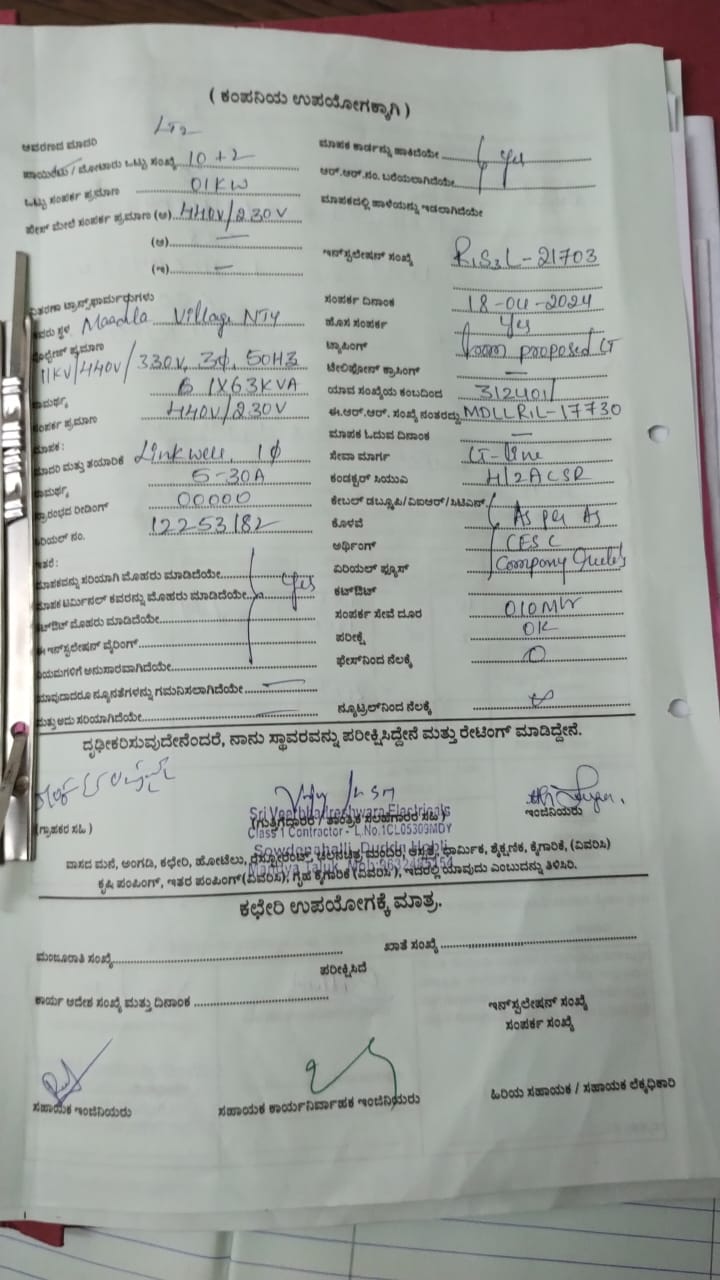 ( ಕಂಪನಿಯ ಉಪಯೋಗಕ್ಕಾಗಿ )
LT2
ಆವರಣದ ಮಾದರಿ
ಮಾಪಕ ಕಾರ್ಡನ್ನು ಹಾಕಿದೆಯೇ
Yes
/ ಮೋಟಾರು ಒಟ್ಟು ಸಂಖ್ಯೆ 10 + 2
ಆರ್.ಆರ್.ನಂ. ಬರೆಯಲಾಗಿದೆಯೇ
ಒಟ್ಟು ಸಂಪರ್ಕ ಪ್ರಮಾಣ 01KW
ಮಾಪಕದಲ್ಲಿ ಹಾಳೆಯನ್ನು ಇಡಲಾಗಿದೆಯೇ
ಫೇಸ್ ಮೇಲೆ ಸಂಪರ್ಕ ಪ್ರಮಾಣ (ಅ) 440V/230V
(ಆ) —
ಇನ್‌ಸ್ಟಲೇಷನ್ ಸಂಖ್ಯೆ R1S3L-21703
(ಇ) —
ವಿತರಣಾ ಟ್ರಾನ್ಸ್‌ಫಾರ್ಮರುಗಳು
ಸಂಪರ್ಕ ದಿನಾಂಕ 18-04-2024
ಸ್ಥಳ Maadla Village NTY
ಹೊಸ ಸಂಪರ್ಕ Yes
ವೋಲ್ಟೇಜ್ ಪ್ರಮಾಣ
ಟ್ಯಾಪಿಂಗ್ from proposed LT
11KV/440V/330V, 3ϕ, 50HZ
ಟೆಲಿಫೋನ್ ಕ್ರಾಸಿಂಗ್ —
ಸಾಮರ್ಥ್ಯ 1X63KVA
ಯಾವ ಸಂಖ್ಯೆಯ ಕಂಬದಿಂದ 312401/
ಸಂಪರ್ಕ ಪ್ರಮಾಣ 440V/230V
ಈ.ಆರ್.ಆರ್. ಸಂಖ್ಯೆ ನಂತರದ್ದು MDLLRIL-17730
ಮಾಪಕ :
ಮಾಪಕ ಓದುವ ದಿನಾಂಕ —
ಮಾದರಿ ಮತ್ತು ತಯಾರಿಕೆ Linkwell, 1ϕ
ಸೇವಾ ಮಾರ್ಗ LT-line
ಸಾಮರ್ಥ್ಯ 5-30A
ಕಂಡಕ್ಟರ್ H/2ACSR
ಪ್ರಾರಂಭದ ರೀಡಿಂಗ್ 00000
ಕೇಬಲ್ ಡಬ್ಲ್ಯೂಪಿ/ವಿಐಆರ್/ಸಿಟಿಎಸ್
ಸೀರಿಯಲ್ ನಂ. 12253182
ಕೊಳವೆ As per As
ಇತರೆ :
ಅರ್ಥಿಂಗ್ CESC
ಮಾಪಕವನ್ನು ಸರಿಯಾಗಿ ಮೊಹರು ಮಾಡಿದೆಯೇ
Yes
ಏರಿಯಲ್ ಫ್ಯೂಸ್ Company
ಮಾಪಕ ಟರ್ಮಿನಲ್ ಕವರನ್ನು ಮೊಹರು ಮಾಡಿದೆಯೇ
ಕಟ್‌ಔಟ್
ಕಟ್‌ಔಟ್ ಮೊಹರು ಮಾಡಿದೆಯೇ
ಸಂಪರ್ಕ ಸೇವೆ ದೂರ 010Mtr
ಈ ಇನ್‌ಸ್ಟಲೇಷನ್ ವೈರಿಂಗ್
ಪರೀಕ್ಷೆ OK
ನಿಯಮಗಳಿಗೆ ಅನುಸಾರವಾಗಿದೆಯೇ
ಫೇಸ್‌ನಿಂದ ನೆಲಕ್ಕೆ 0
ಯಾವುದಾದರೂ ನ್ಯೂನತೆಗಳನ್ನು ಗಮನಿಸಲಾಗಿದೆಯೇ —
ಮತ್ತು ಅದು ಸರಿಯಾಗಿದೆಯೇ —
ನ್ಯೂಟ್ರಲ್‌ನಿಂದ ನೆಲಕ್ಕೆ
ದೃಢೀಕರಿಸುವುದೇನೆಂದರೆ, ನಾನು ಸ್ಥಾವರವನ್ನು ಪರೀಕ್ಷಿಸಿದ್ದೇನೆ ಮತ್ತು ರೇಟಿಂಗ್ ಮಾಡಿದ್ದೇನೆ.
Sri Veerbhadreshwara Electricals
(ಗ್ರಾಹಕರ ಸಹಿ)
(ಗುತ್ತಿಗೆದಾರರ / ತಾಂತ್ರಿಕ ಸಲಹೆಗಾರರ ಸಹಿ)
ಇಂಜಿನಿಯರು
Class 1 Contractor - L.No.1CL05309MDY
ವಾಸದ ಮನೆ, ಅಂಗಡಿ, ಕಛೇರಿ, ಹೋಟೆಲು, ರೆಸ್ಟೋರೆಂಟ್, ಚಲನಚಿತ್ರ ಮಂದಿರ, ಆಸ್ಪತ್ರೆ, ಧಾರ್ಮಿಕ, ಶೈಕ್ಷಣಿಕ, ಕೈಗಾರಿಕೆ, (ವಿವರಿಸಿ)
ಕೃಷಿ ಪಂಪಿಂಗ್, ಇತರ ಪಂಪಿಂಗ್(ವಿವರಿಸಿ), ಗೃಹ ಕೈಗಾರಿಕೆ (ವಿವರಿಸಿ), ಇದರಲ್ಲಿ ಯಾವುದು ಎಂಬುದನ್ನು ತಿಳಿಸಿರಿ.
ಕಛೇರಿ ಉಪಯೋಗಕ್ಕೆ ಮಾತ್ರ.
ಮಂಜೂರಾತಿ ಸಂಖ್ಯೆ
ಖಾತೆ ಸಂಖ್ಯೆ
ಪರೀಕ್ಷಿಸಿದೆ
ಕಾರ್ಯ ಆದೇಶ ಸಂಖ್ಯೆ ಮತ್ತು ದಿನಾಂಕ
ಇನ್‌ಸ್ಟಲೇಷನ್ ಸಂಖ್ಯೆ
ಸಂಪರ್ಕ ಸಂಖ್ಯೆ
ಸಹಾಯಕ ಇಂಜಿನಿಯರು
ಸಹಾಯಕ ಕಾರ್ಯನಿರ್ವಾಹಕ ಇಂಜಿನಿಯರು
ಹಿರಿಯ ಸಹಾಯಕ / ಸಹಾಯಕ ಲೆಕ್ಕಧಿಕಾರಿ